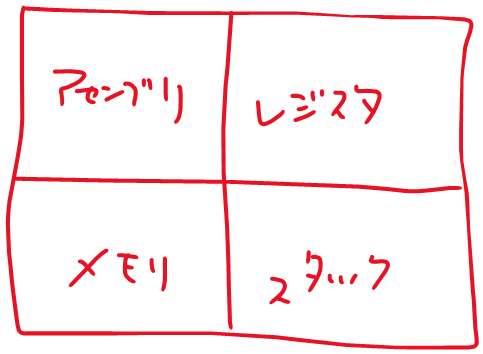 アセンブリ
レジスタ
メモリ
スタック